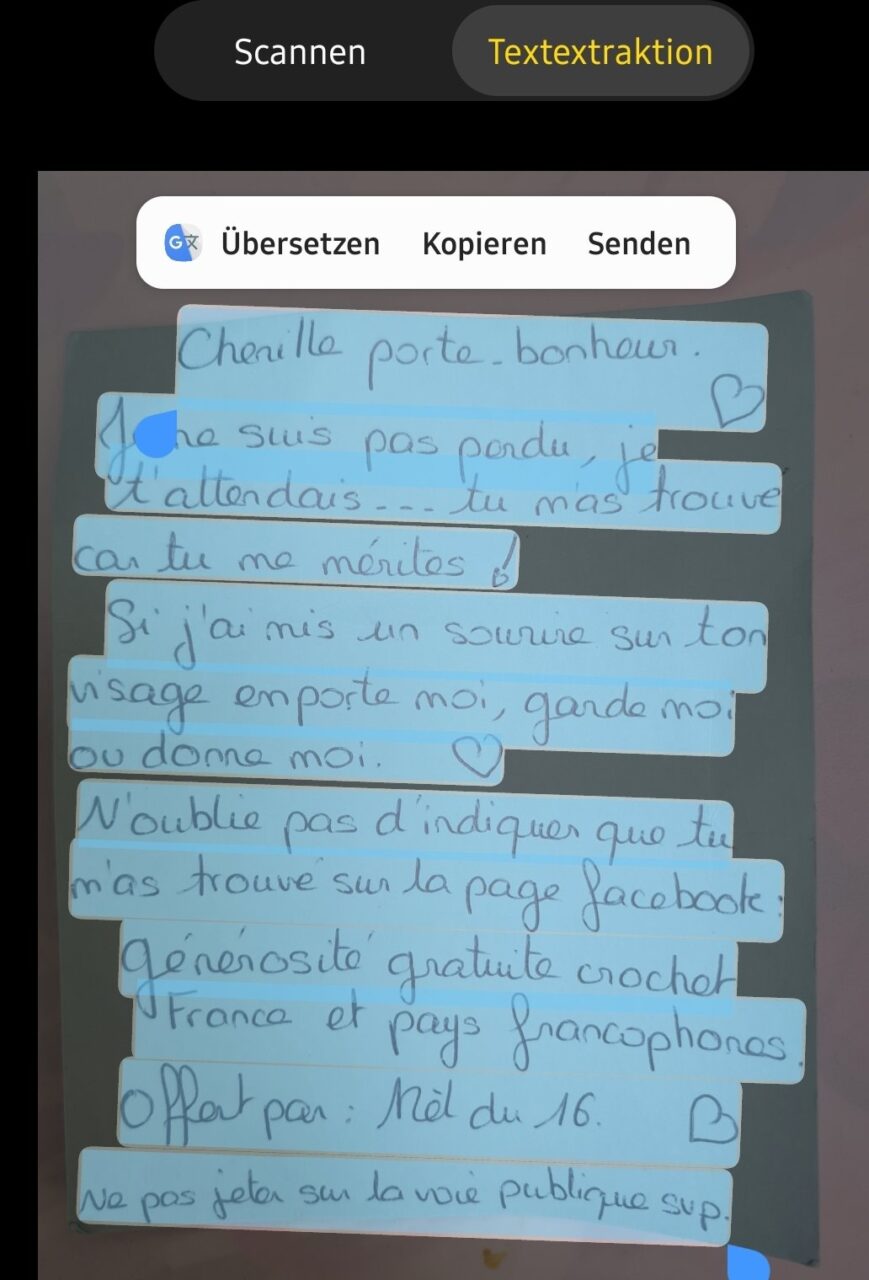 Scannen Textextraktion
Übersetzen Kopieren Senden
Chenille porte-bonheur.
Je ne suis pas perdu, je
t'attendais... tu m'as trouvé
car tu me mérites !
Si j'ai mis un sourire sur ton
visage emporte moi, garde moi
ou donne moi.
N'oublie pas d'indiquer que tu
m'as trouvé sur la page facebook :
générosité gratuite crochet
France et pays francophones.
Offert par : Mèl du 16.
Ne pas jeter sur la voie publique svp.